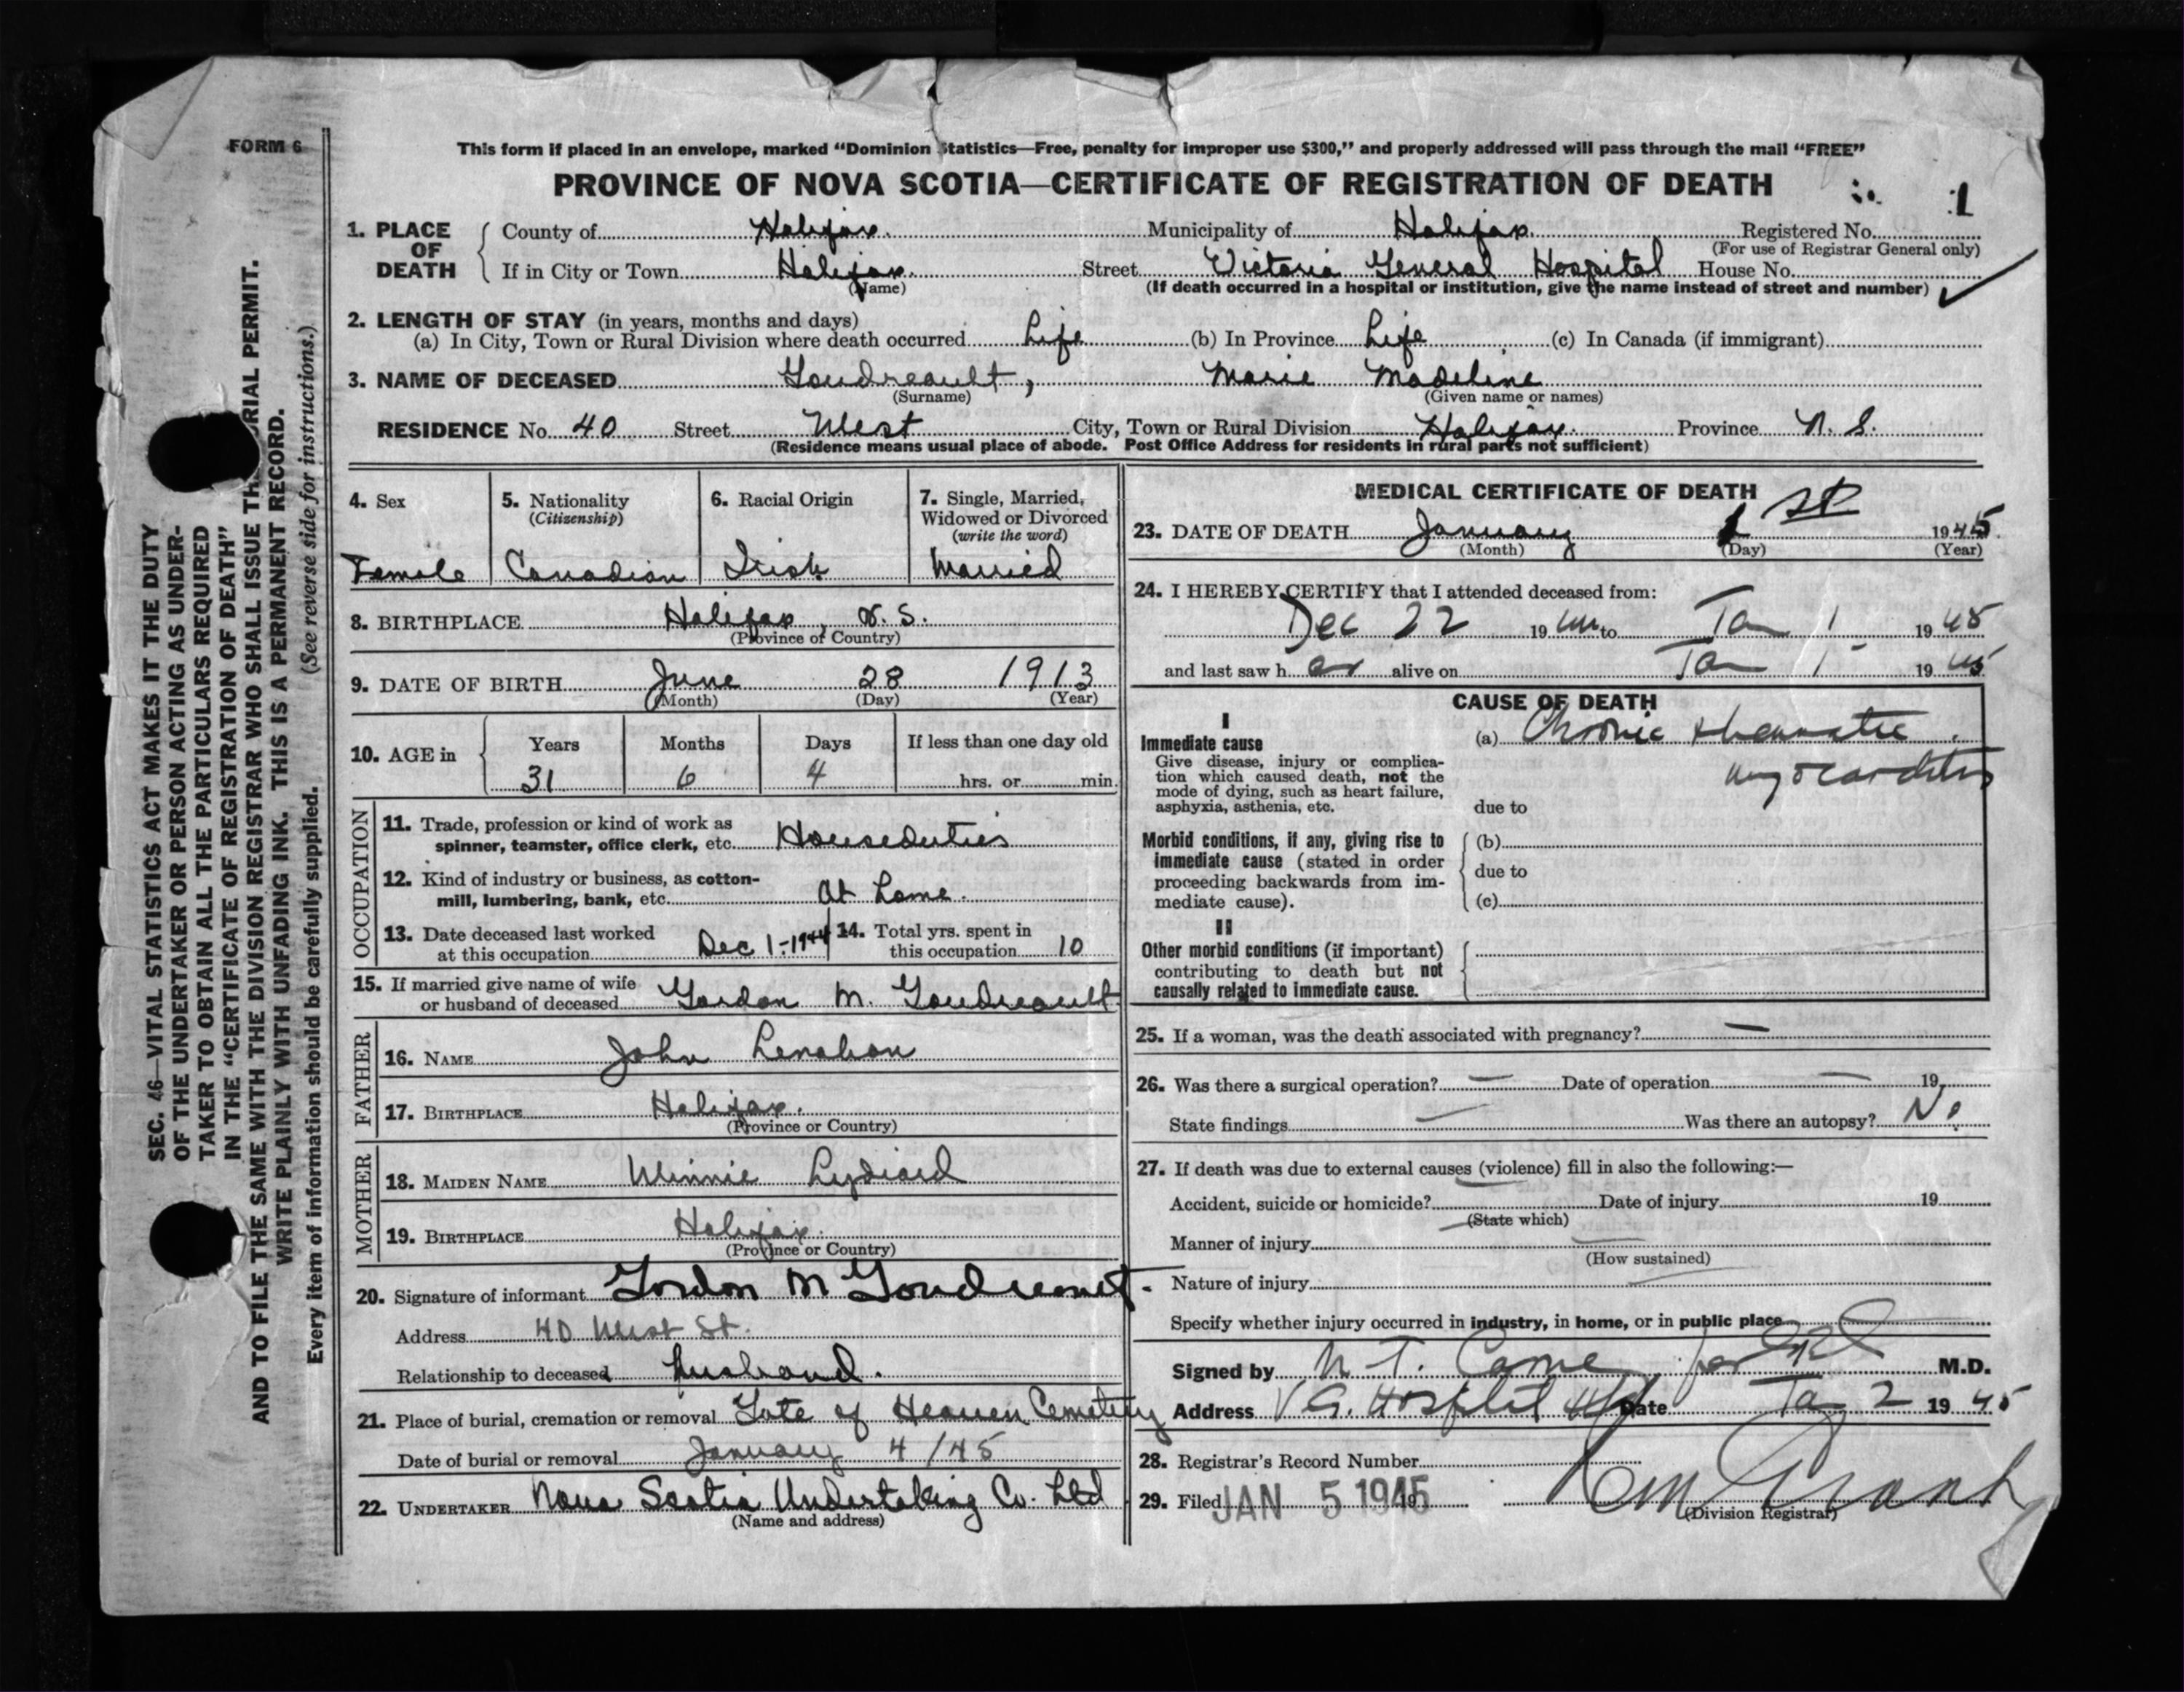 FORM 6
This form if placed in an envelope, marked "Dominion Statistics—Free, penalty for improper use $300," and properly addressed will pass through the mail "FREE"
PROVINCE OF NOVA SCOTIA—CERTIFICATE OF REGISTRATION OF DEATH
1
1. PLACE OF DEATH
County of Halifax. Municipality of Halifax. Registered No.
(For use of Registrar General only)
If in City or Town Halifax. Street Victoria General Hospital House No.
(Name) (If death occurred in a hospital or institution, give the name instead of street and number)
2. LENGTH OF STAY (in years, months and days)
(a) In City, Town or Rural Division where death occurred Life (b) In Province Life (c) In Canada (if immigrant)
3. NAME OF DECEASED Goudreault, Marie Madeline
(Surname) (Given name or names)
RESIDENCE No. 40 Street West City, Town or Rural Division Halifax. Province N. S.
(Residence means usual place of abode. Post Office Address for residents in rural parts not sufficient)
4. Sex
Female
5. Nationality
(Citizenship)
Canadian
6. Racial Origin
Irish
7. Single, Married,
Widowed or Divorced
(write the word)
Married
8. BIRTHPLACE Halifax, N. S.
(Province or Country)
9. DATE OF BIRTH June 28 1913
(Month) (Day) (Year)
10. AGE in
Years Months Days If less than one day old
31 6 4 hrs. or min.
OCCUPATION
11. Trade, profession or kind of work as
spinner, teamster, office clerk, etc. Houseduties
12. Kind of industry or business, as cotton-
mill, lumbering, bank, etc. At home.
13. Date deceased last worked
at this occupation Dec 1-1944
14. Total yrs. spent in
this occupation 10
15. If married give name of wife
or husband of deceased Gordon M. Goudreault
FATHER
16. NAME John Lenahan
17. BIRTHPLACE Halifax.
(Province or Country)
MOTHER
18. MAIDEN NAME Winnie Lydiard
19. BIRTHPLACE Halifax.
(Province or Country)
20. Signature of informant Gordon M Goudreault.
Address 40 West St.
Relationship to deceased husband.
21. Place of burial, cremation or removal Gate of Heaven Cemetery
Date of burial or removal January 4/45
22. UNDERTAKER Nova Scotia Undertaking Co. Ltd
(Name and address)
MEDICAL CERTIFICATE OF DEATH
23. DATE OF DEATH January 1 st 1945
(Month) (Day) (Year)
24. I HEREBY CERTIFY that I attended deceased from:
Dec 22 1944 to Jan 1 1945
and last saw her alive on Jan 1 1945
CAUSE OF DEATH
I
Immediate cause
Give disease, injury or complica-
tion which caused death, not the
mode of dying, such as heart failure,
asphyxia, asthenia, etc.
(a) Chronic rheumatic
myocarditis
due to
Morbid conditions, if any, giving rise to
immediate cause (stated in order
proceeding backwards from im-
mediate cause).
(b)
due to
(c)
II
Other morbid conditions (if important)
contributing to death but not
causally related to immediate cause.
25. If a woman, was the death associated with pregnancy? —
26. Was there a surgical operation? — Date of operation — 19
State findings — Was there an autopsy? No
27. If death was due to external causes (violence) fill in also the following:—
Accident, suicide or homicide? Date of injury 19
(State which)
Manner of injury
(How sustained)
Nature of injury
Specify whether injury occurred in industry, in home, or in public place
Signed by N. T. per M.D.
Address V G. Hospital Date Jan 2 1945
28. Registrar's Record Number
29. Filed JAN 5 1945 19
(Division Registrar)
SEC. 46—VITAL STATISTICS ACT MAKES IT THE DUTY
OF THE UNDERTAKER OR PERSON ACTING AS UNDER-
TAKER TO OBTAIN ALL THE PARTICULARS REQUIRED
IN THE "CERTIFICATE OF REGISTRATION OF DEATH"
AND TO FILE THE SAME WITH THE DIVISION REGISTRAR WHO SHALL ISSUE THE BURIAL PERMIT.
WRITE PLAINLY WITH UNFADING INK. THIS IS A PERMANENT RECORD.
Every item of information should be carefully supplied. (See reverse side for instructions.)